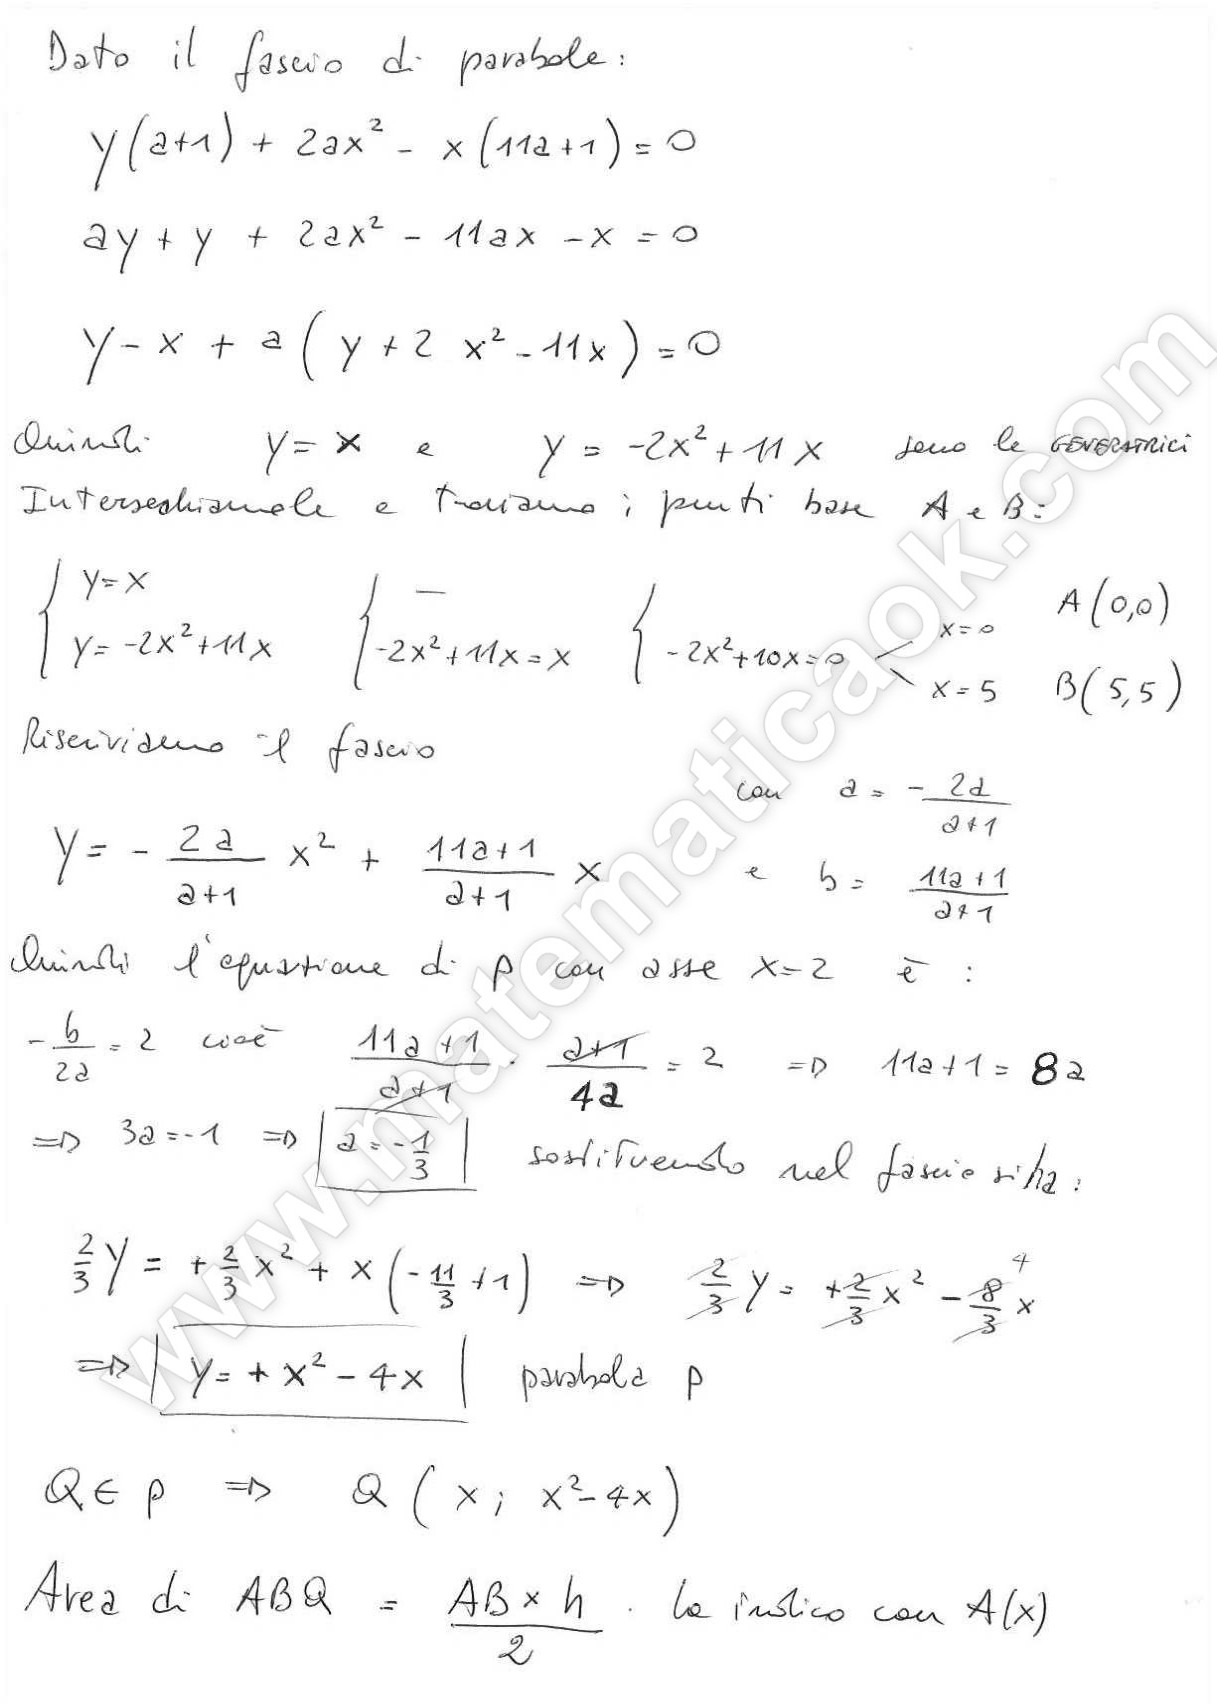 Dato il fascio di parabole:
y(a+1) + 2ax² - x(11a+1) = 0
ay + y + 2ax² - 11ax - x = 0
y - x + a(y + 2x² - 11x) = 0
Quindi y = x e y = -2x² + 11x sono le GENERATRICI
Intersechiamole e troviamo i punti base A e B:
{ y = x { — { x = 0 A(0,0)
y = -2x² + 11x -2x² + 11x = x -2x² + 10x = 0 x = 5 B(5,5)
Riscriviamo il fascio
con a = - 2a/(a+1)
y = - 2a/(a+1) x² + (11a+1)/(a+1) x e b = (11a+1)/(a+1)
Quindi l'equazione di p con asse x = 2 è :
- b/2a = 2 cioè (11a+1)/(a+1) · (a+1)/4a = 2 => 11a+1 = 8a
=> 3a = -1 => a = - 1/3 sostituendo nel fascio si ha:
2/3 y = + 2/3 x² + x(- 11/3 + 1) => 2/3 y = + 2/3 x² - 8/3 x 4
=> y = + x² - 4x parabola p
Q ∈ p => Q ( x ; x² - 4x)
Area di ABQ = AB × h / 2 . la indico con A(x)
www.matematicaok.com